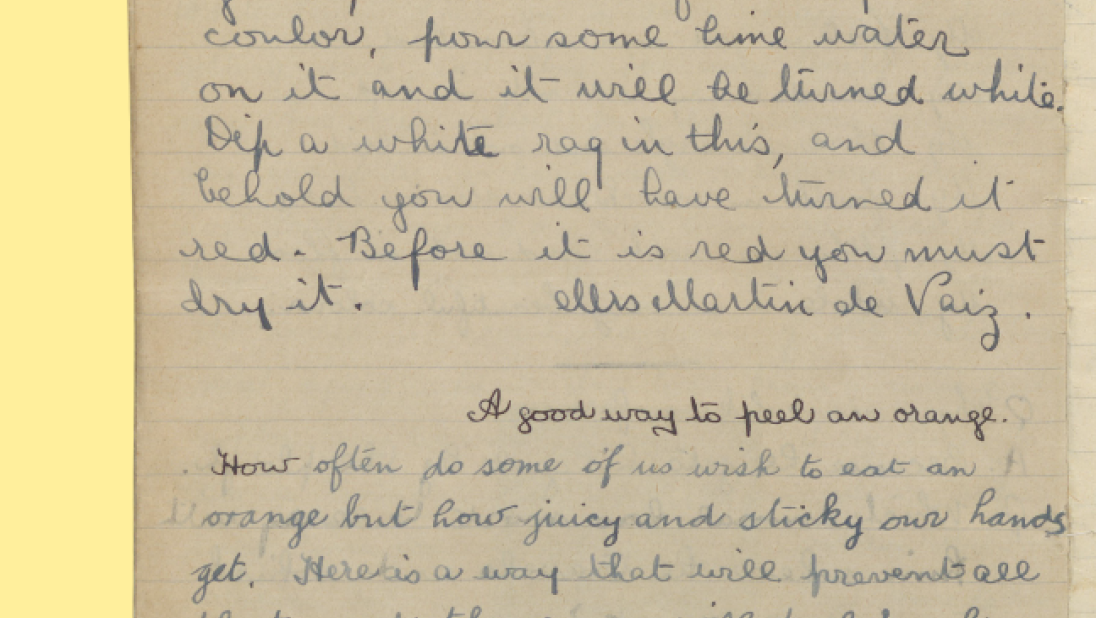 coulor, pour some lime water
on it and it will be turned white.
Dip a white rag in this, and
behold you will have turned it
red. Before it is red you must
dry it. Mrs Martin de Vaiz.
A good way to peel an orange.
How often do some of us wish to eat an
orange but how juicy and sticky our hands
get. Here is a way that will prevent all